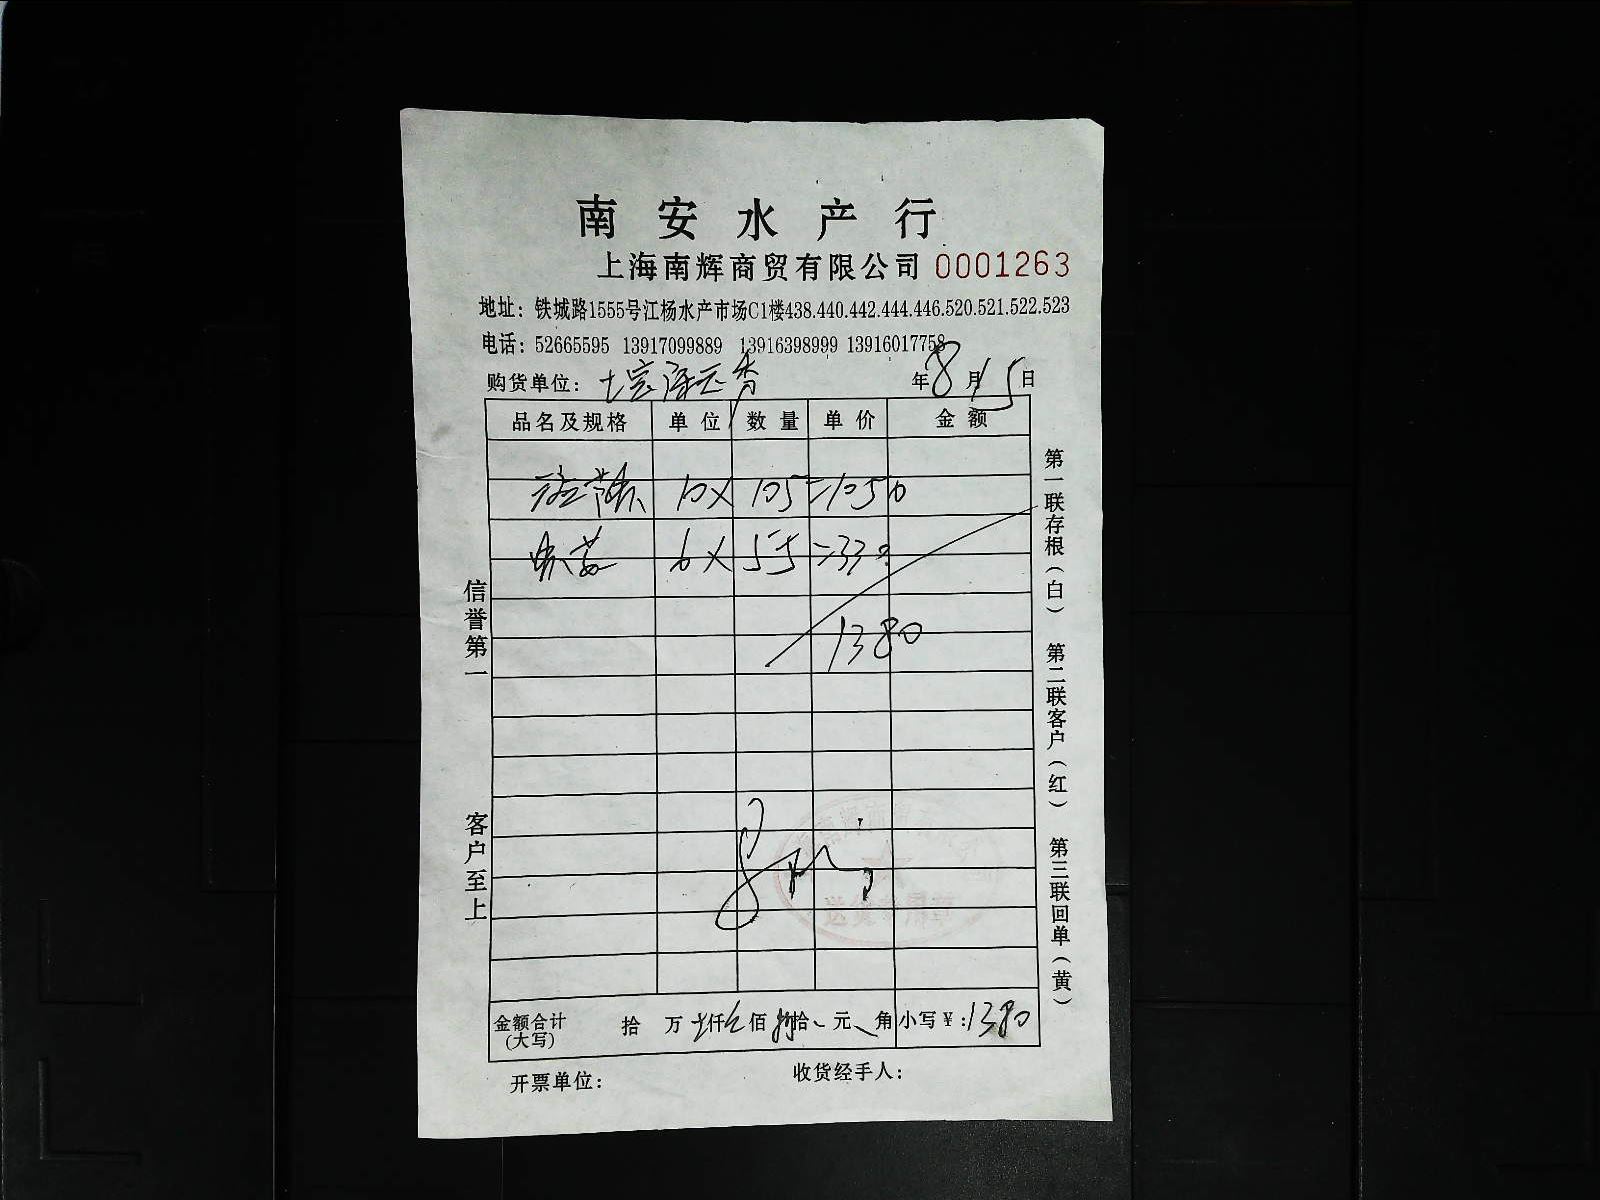 南安水产行
上海南辉商贸有限公司 0001263
地址：铁城路1555号江杨水产市场C1楼438.440.442.444.446.520.521.522.523
电话：52665595 13917099889 13916398999 13916017758
购货单位： 年8月15日
品名及规格 单位 数量 单价 金额
10× 105=1050
6× 55=330
1380
金额合计 拾 万 仟 佰 拾 元 角 小写￥：1380
(大写)
开票单位： 收货经手人：
信誉第一 客户至上
第一联存根（白） 第二联客户（红） 第三联回单（黄）